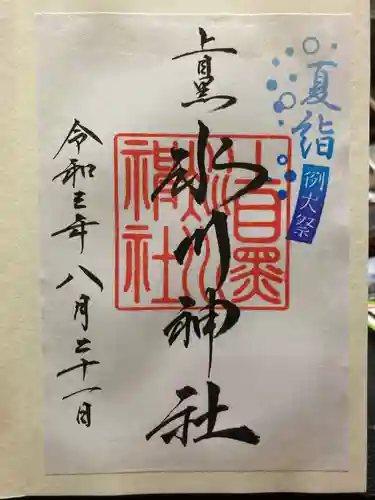 夏詣
例大祭
上目黒
氷川神社
上目黒
氷川
神社
令和 年
八月二十一日